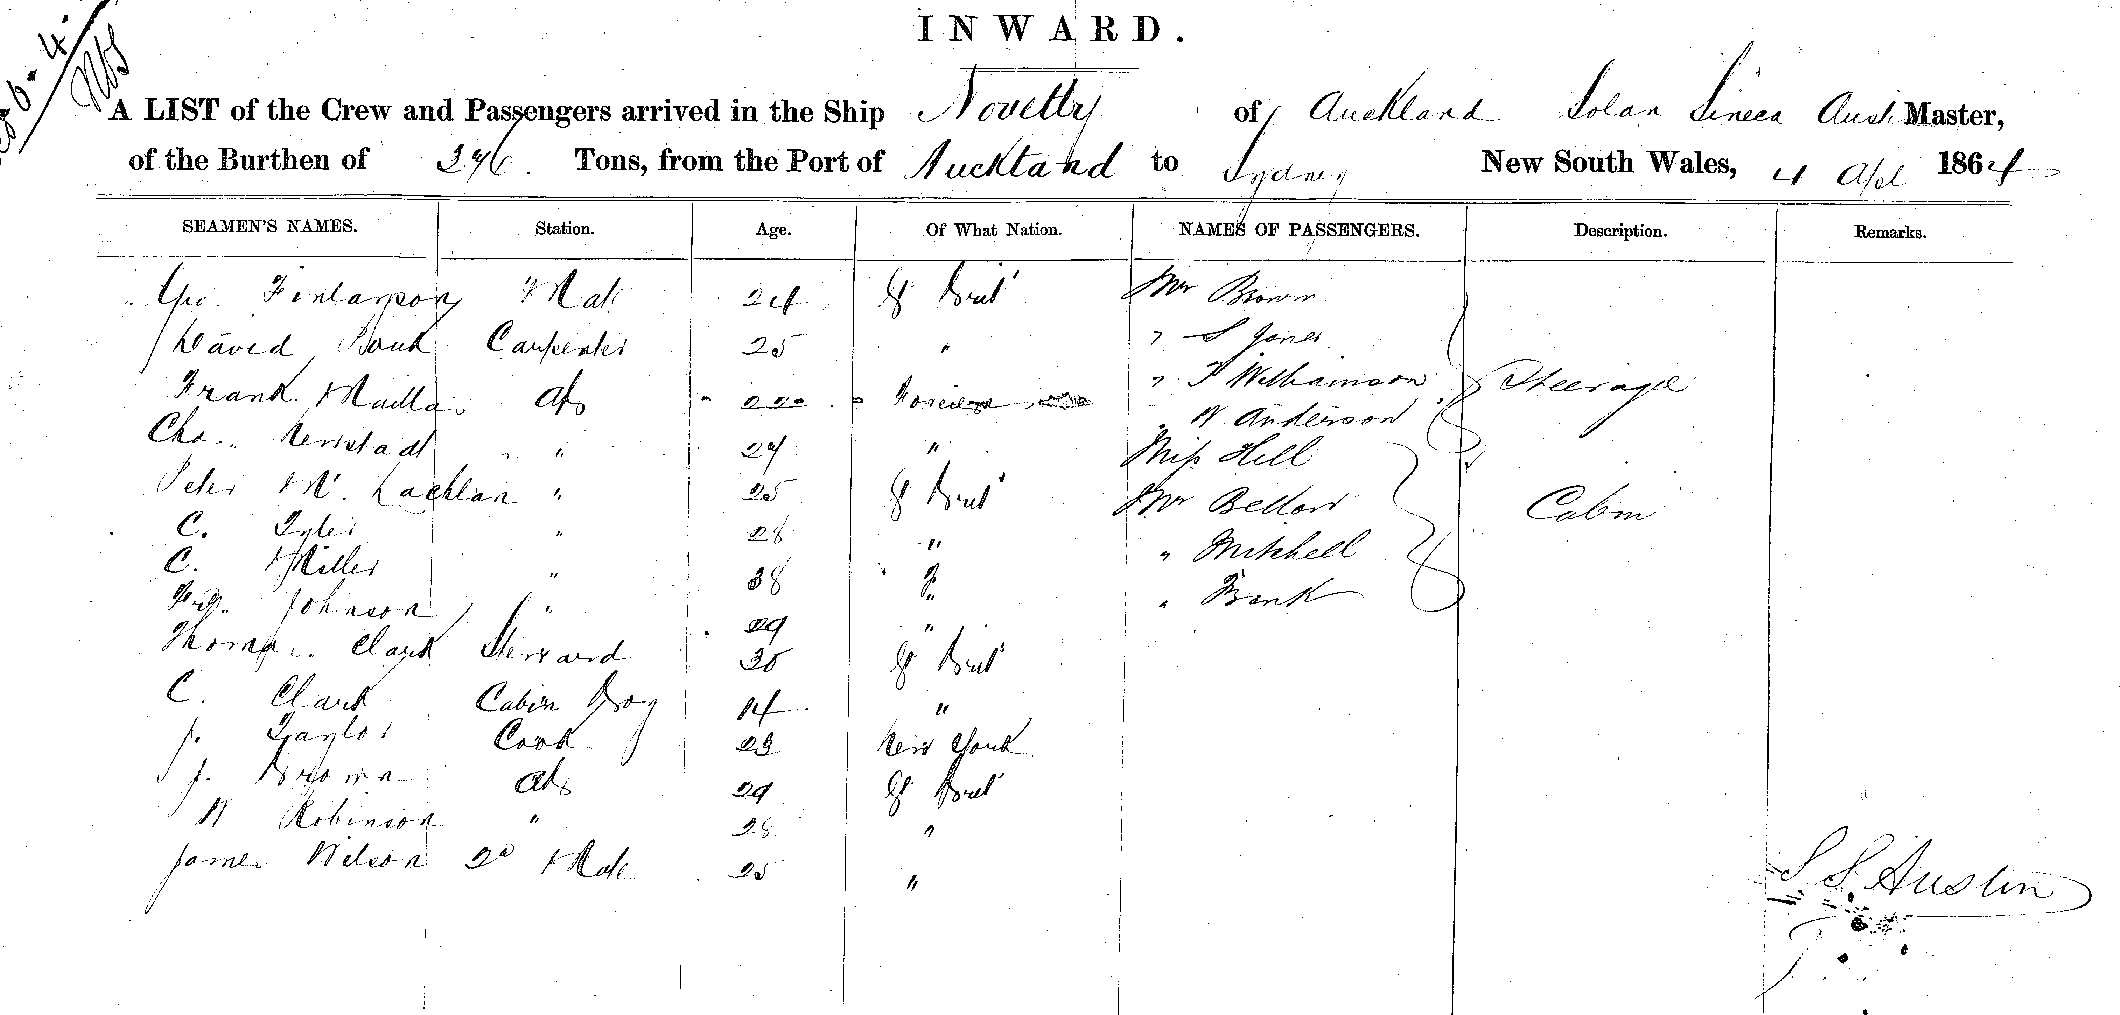 INWARD.
A LIST of the Crew and Passengers arrived in the Ship Novelty of Auckland Solan Sineca Aust Master,
of the Burthen of 376 Tons, from the Port of Auckland to Sydney New South Wales, 4 Apl 1864
SEAMEN'S NAMES. Station. Age. Of What Nation. NAMES OF PASSENGERS. Description. Remarks.
Geo. Finlayson Mate 24 Gt Brit Mr Brown
David Carpenter 25 " " S Jones
Frank AB " T Williamson Steerage
" W Anderson
Chas. Newstadt " 24 " Miss Hill
Peter Mc Lachlan " 25 Gt Brit Mr Bellow Cabin
C. Tyler " 28 " " Mitchell
C. Miller " 38 " Frank
Johnson " 29 "
Thomas Clark Steward 30 Gt Brit
C. Clark Cabin Boy 14 "
J. Taylor Cook 23 New York
J. Brown AB 29 Gt Brit
W Robinson " 28 "
James Wilson 2d Mate 25 "
S S Austin